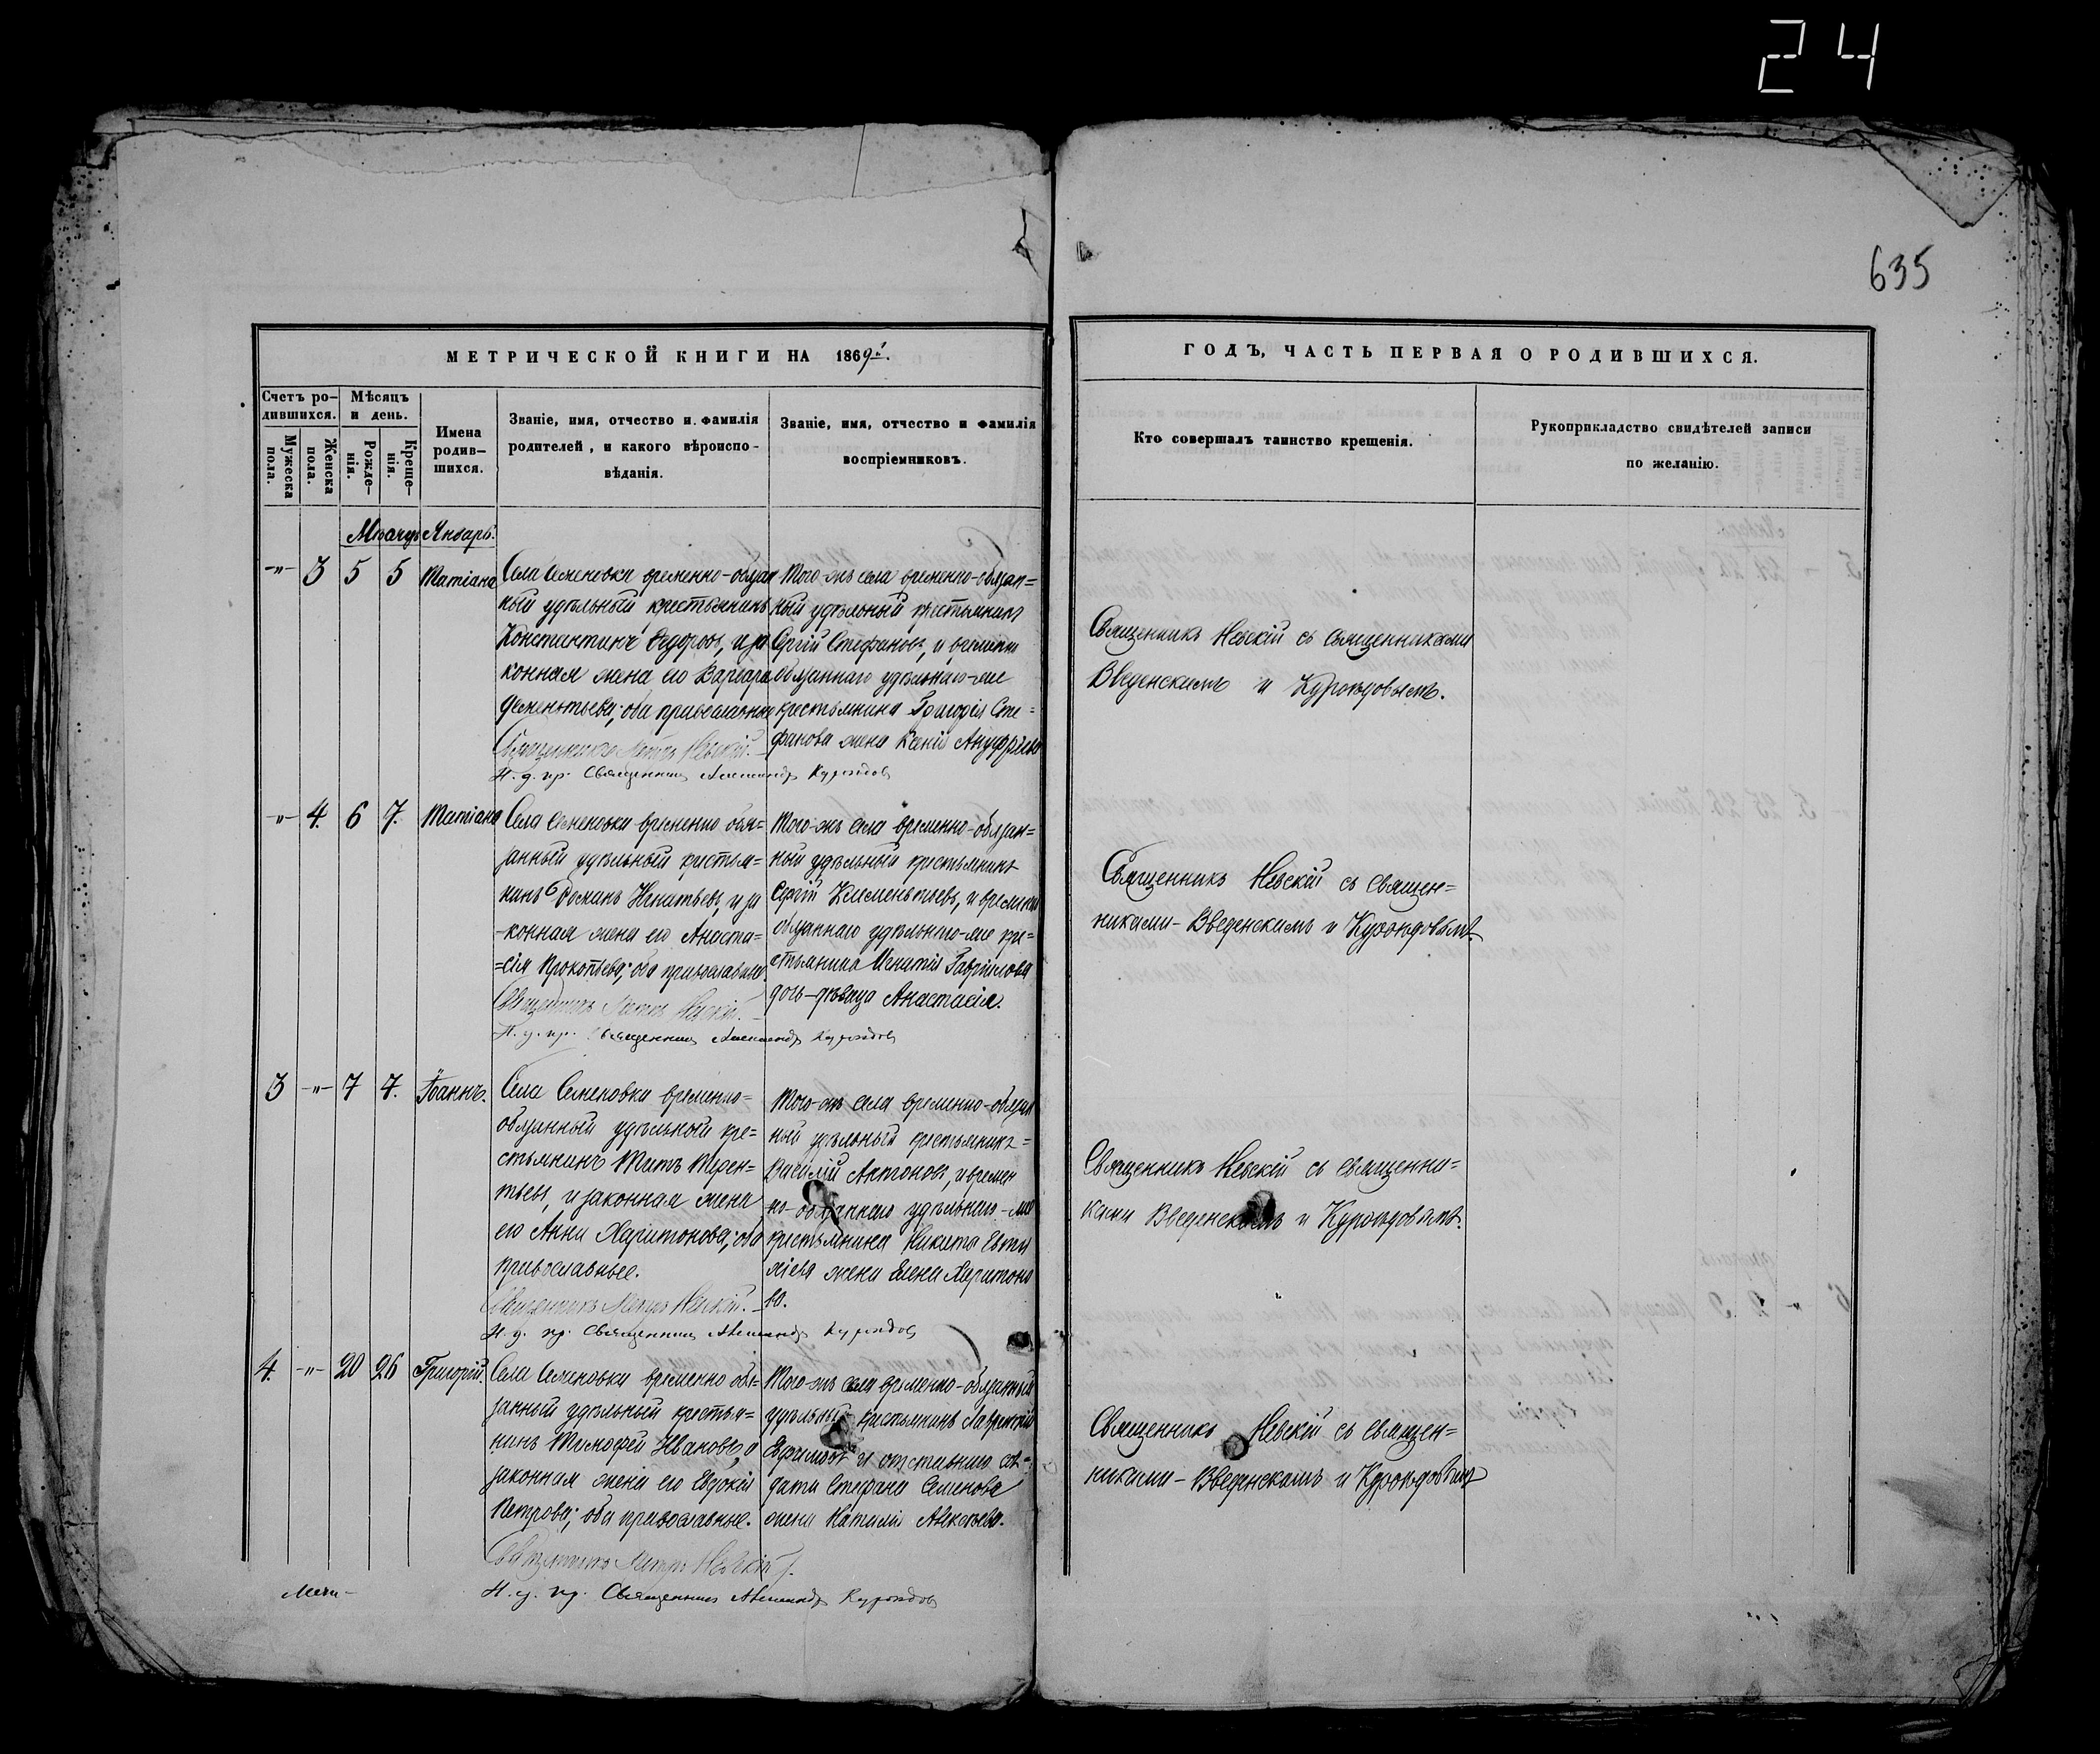 24
635
МЕТРИЧЕСКОЙ КНИГИ НА 1869й.
Счетъ ро-
дившихся.
Мужеска
пола.
Женска
пола.
Мѣсяцъ
и день.
Рожде-
нія.
Креще-
нія.
Имена
родив-
шихся.
Званіе, имя, отчество и фамилія
родителей, и какого вѣроиспо-
вѣданія.
Званіе, имя, отчество и фамилія
воспріемниковъ.
ГОДЪ, ЧАСТЬ ПЕРВАЯ О РОДИВШИХСЯ.
Кто совершалъ таинство крещенія.
Рукоприкладство свидѣтелей записи
по желанію.
Мѣсяцъ Январь.
-"- 3 5 5 Татіана
Села Семеновки временно-обязан
ный удѣльный крестьянинъ
Константинъ Ѳедоровъ, и за
конная жена его Варвара
Дементьева; оба православные
Священникъ Петръ Невскій.
Н. д. пр. Священникъ Александръ Куроѣдовъ
Того-жъ села временно-обязан=
ный удѣльный крестьянинъ
Сергій Стефановъ, и временно
обязаннаго удѣльнаго-же
крестьянина Григорія Сте=
фанова жена Ксенія Ануфріева
Священникъ Невскій съ священниками
Введенскимъ и Куроѣдовымъ.
-"- 4. 6 7. Татіана
Села Семеновки временно обя=
занный удѣльный крестья=
нинъ Ѳоминъ Игнатьевъ, и за
конная жена его Анаста=
=сія Прокопьева; оба православные.
Священникъ Петръ Невскій.
Н. д. пр. Священникъ Александръ Куроѣдовъ
Того-жъ села временно-обязан=
ный удѣльный крестьянинъ
Сергій Клементьевъ, и временно
обязаннаго удѣльнаго-же кре=
стьянина Игнатія Гаврилова
дочь-дѣвица Анастасія.
Священникъ Невскій съ священ=
никами-Введенскимъ и Куроѣдовымъ
3 -"- 7 7. Іоаннъ.
Села Семеновки временно=
обязанный удѣльный кре=
стьянинъ Титъ Терен=
тьевъ, и законная жена
его Анна Харитонова; оба
православные.
Священникъ Петръ Невскій.
Н. д. пр. Священникъ Александръ Куроѣдовъ
Того-жъ села временно-обязан
ный удѣльный крестьянинъ=
Василій Антоновъ, и времен
но-обязаннаго удѣльнаго-же
крестьянина Никиты Евти
хіева жена Елена Харитоно
ва.
Священникъ Невскій съ священни=
ками Введенскимъ и Куроѣдовымъ.
4. -"- 20 26 Григорій.
Села Семеновки временно обя=
занный удѣльный крестья=
нинъ Тимофей Ивановъ, и
законная жена его Евдокія
Петрова; оба православные.
Священникъ Петръ Невскій.
Н. д. пр. Священникъ Александръ Куроѣдовъ
Того-жъ села временно-обязанный
удѣльный крестьянинъ Лаврентій
Ефимовъ и отставнаго сол=
дата Стефана Семенова
жена Наталія Алексѣева.
Священникъ Невскій съ священ=
никами-Введенскимъ и Куроѣдовымъ